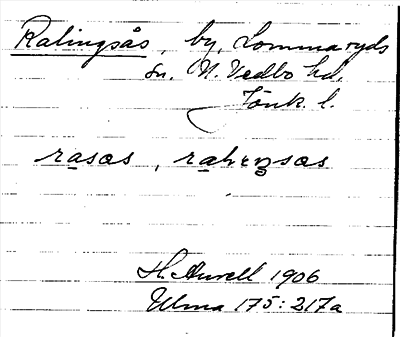 Ralingsås, by, Lommaryds
sn. N. Vedbo hd,
Jönk. l.
rasas, raheŋsas
H. Aurell 1906
Ulma 175:217a